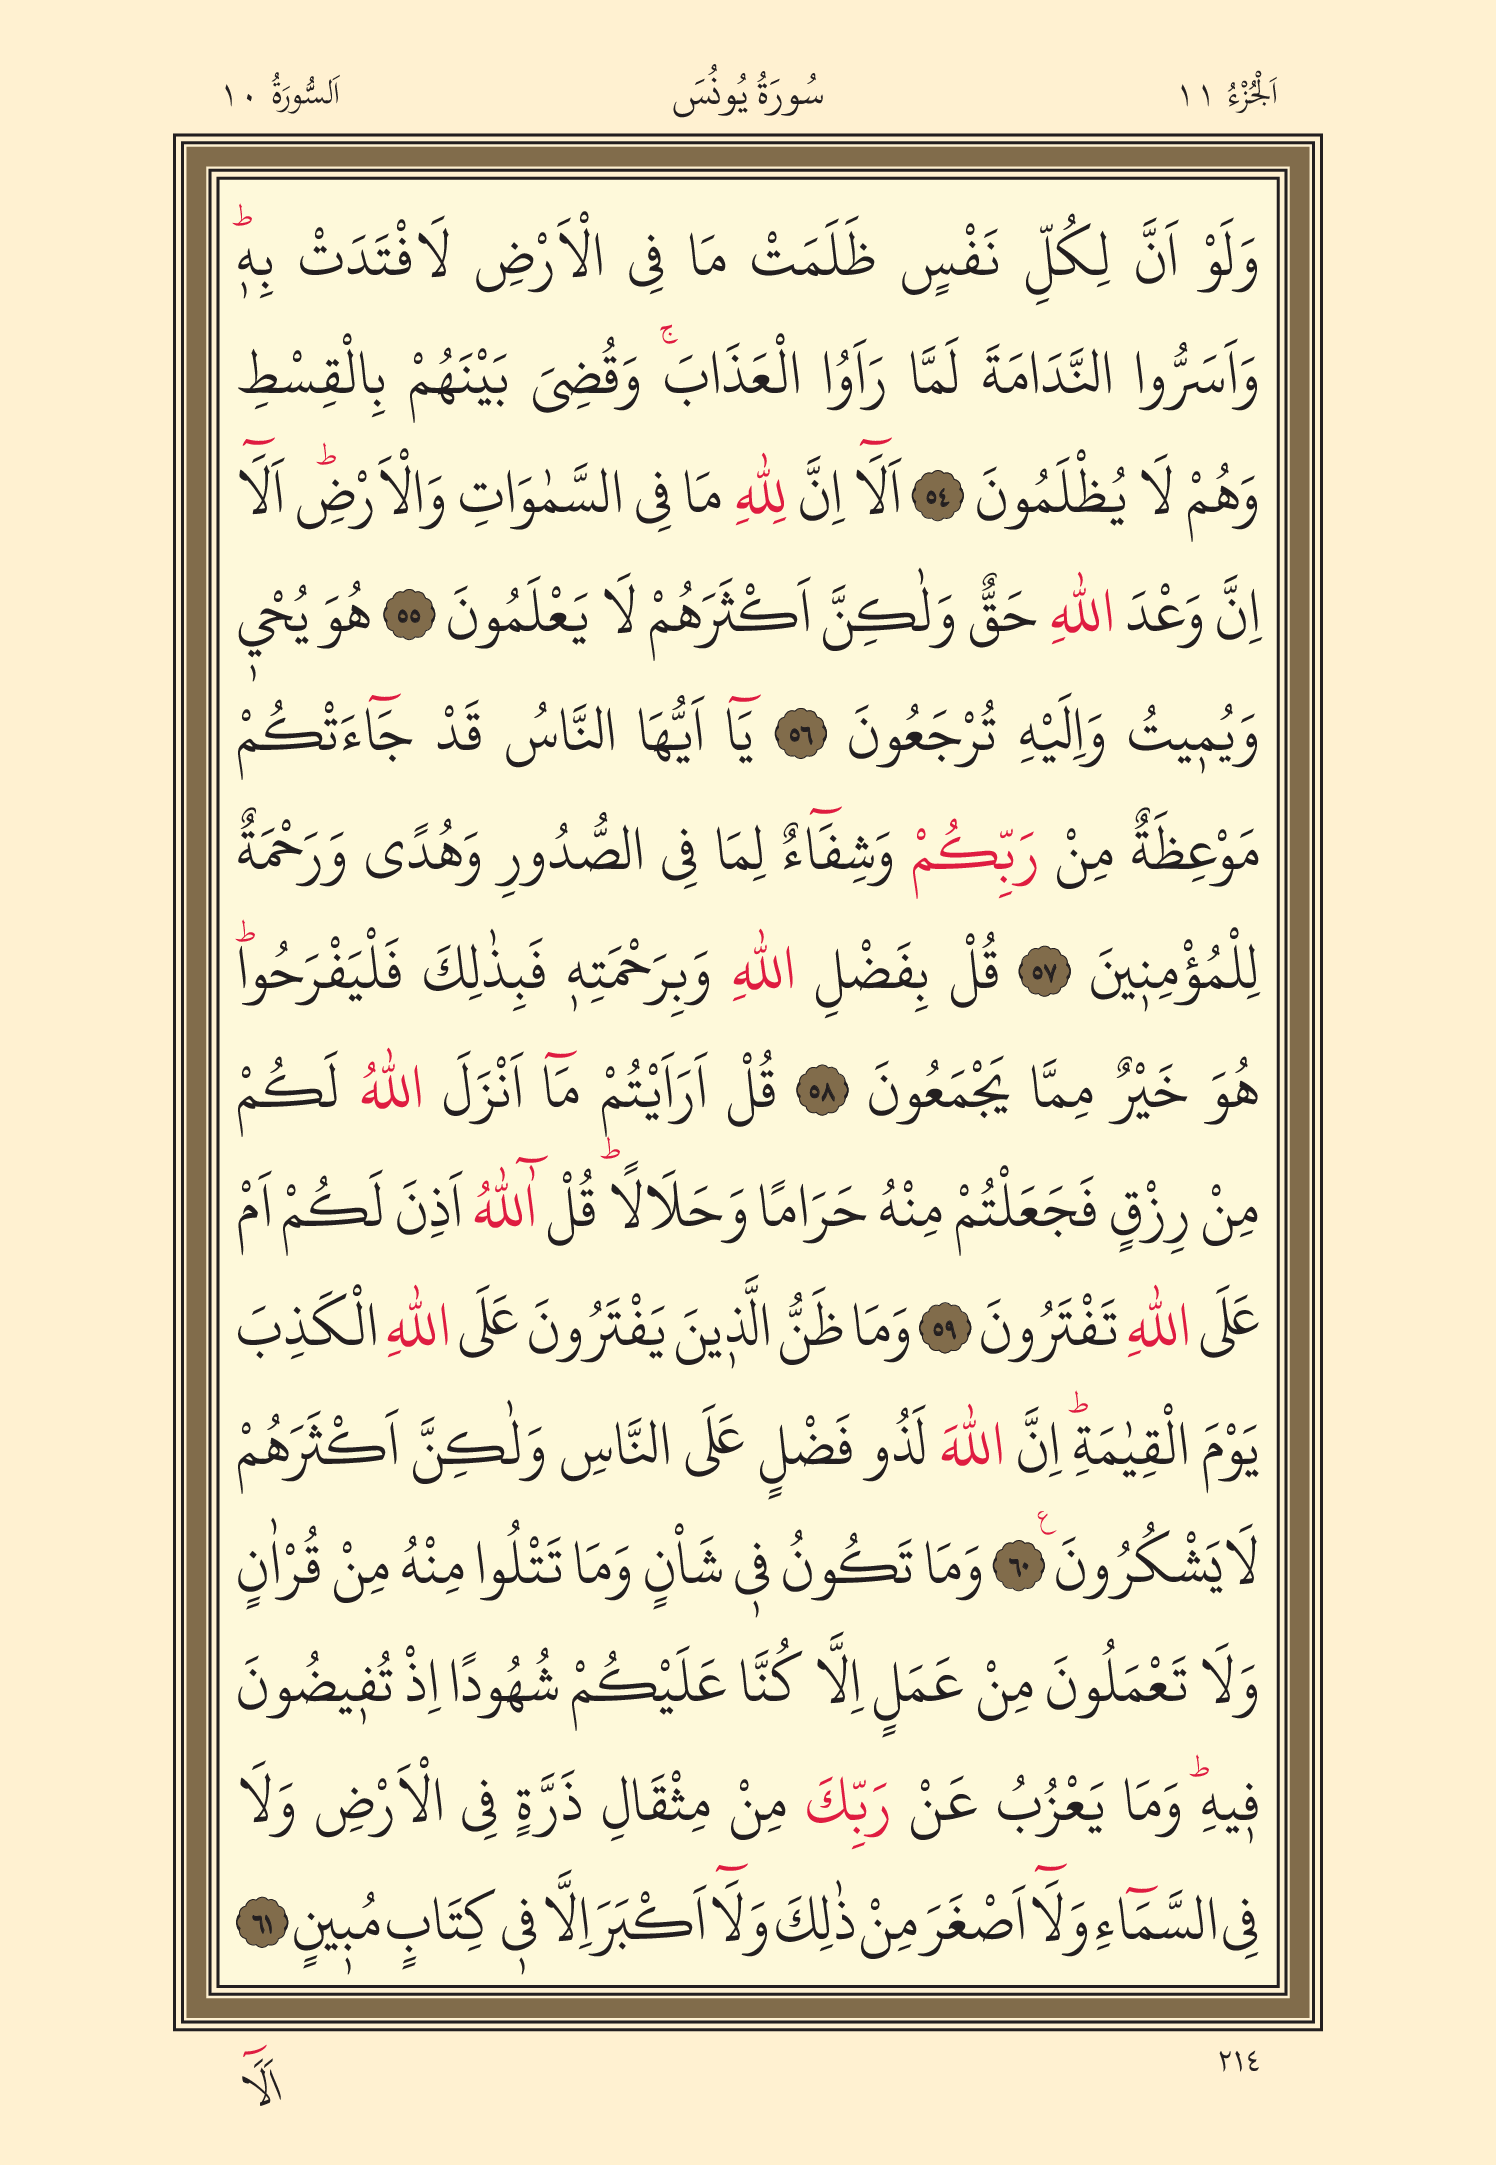 اَلْجُزْءُ ١١
سُورَةُ يُونُسَ
اَلسُّورَةُ ١٠
وَلَوْ اَنَّ لِكُلِّ نَفْسٍ ظَلَمَتْ مَا فِى الْاَرْضِ لَافْتَدَتْ بِهٖؕ
وَاَسَرُّوا النَّدَامَةَ لَمَّا رَاَوُا الْعَذَابَۚ وَقُضِىَ بَيْنَهُمْ بِالْقِسْطِ
وَهُمْ لَا يُظْلَمُونَ ﴿٥٤﴾ اَلَٓا اِنَّ لِلّٰهِ مَا فِى السَّمٰوَاتِ وَالْاَرْضِؕ اَلَٓا
اِنَّ وَعْدَ اللّٰهِ حَقٌّ وَلٰكِنَّ اَكْثَرَهُمْ لَا يَعْلَمُونَ ﴿٥٥﴾ هُوَ يُحْيٖ
وَيُمٖيتُ وَاِلَيْهِ تُرْجَعُونَ ﴿٥٦﴾ يَٓا اَيُّهَا النَّاسُ قَدْ جَٓاءَتْكُمْ
مَوْعِظَةٌ مِنْ رَبِّكُمْ وَشِفَٓاءٌ لِمَا فِى الصُّدُورِ وَهُدًى وَرَحْمَةٌ
لِلْمُؤْمِنٖينَ ﴿٥٧﴾ قُلْ بِفَضْلِ اللّٰهِ وَبِرَحْمَتِهٖ فَبِذٰلِكَ فَلْيَفْرَحُواؕ
هُوَ خَيْرٌ مِمَّا يَجْمَعُونَ ﴿٥٨﴾ قُلْ اَرَاَيْتُمْ مَٓا اَنْزَلَ اللّٰهُ لَكُمْ
مِنْ رِزْقٍ فَجَعَلْتُمْ مِنْهُ حَرَامًا وَحَلَالًاؕ قُلْ آٰللّٰهُ اَذِنَ لَكُمْ اَمْ
عَلَى اللّٰهِ تَفْتَرُونَ ﴿٥٩﴾ وَمَا ظَنُّ الَّذٖينَ يَفْتَرُونَ عَلَى اللّٰهِ الْكَذِبَ
يَوْمَ الْقِيٰمَةِؕ اِنَّ اللّٰهَ لَذُو فَضْلٍ عَلَى النَّاسِ وَلٰكِنَّ اَكْثَرَهُمْ
لَا يَشْكُرُونَ ࣖ ﴿٦٠﴾ وَمَا تَكُونُ فٖى شَاْنٍ وَمَا تَتْلُوا مِنْهُ مِنْ قُرْاٰنٍ
وَلَا تَعْمَلُونَ مِنْ عَمَلٍ اِلَّا كُنَّا عَلَيْكُمْ شُهُودًا اِذْ تُفٖيضُونَ
فٖيهِؕ وَمَا يَعْزُبُ عَنْ رَبِّكَ مِنْ مِثْقَالِ ذَرَّةٍ فِى الْاَرْضِ وَلَا
فِى السَّمَٓاءِ وَلَٓا اَصْغَرَ مِنْ ذٰلِكَ وَلَٓا اَكْبَرَ اِلَّا فٖى كِتَابٍ مُبٖينٍ ﴿٦١﴾
٢١٤
اَلَٓا